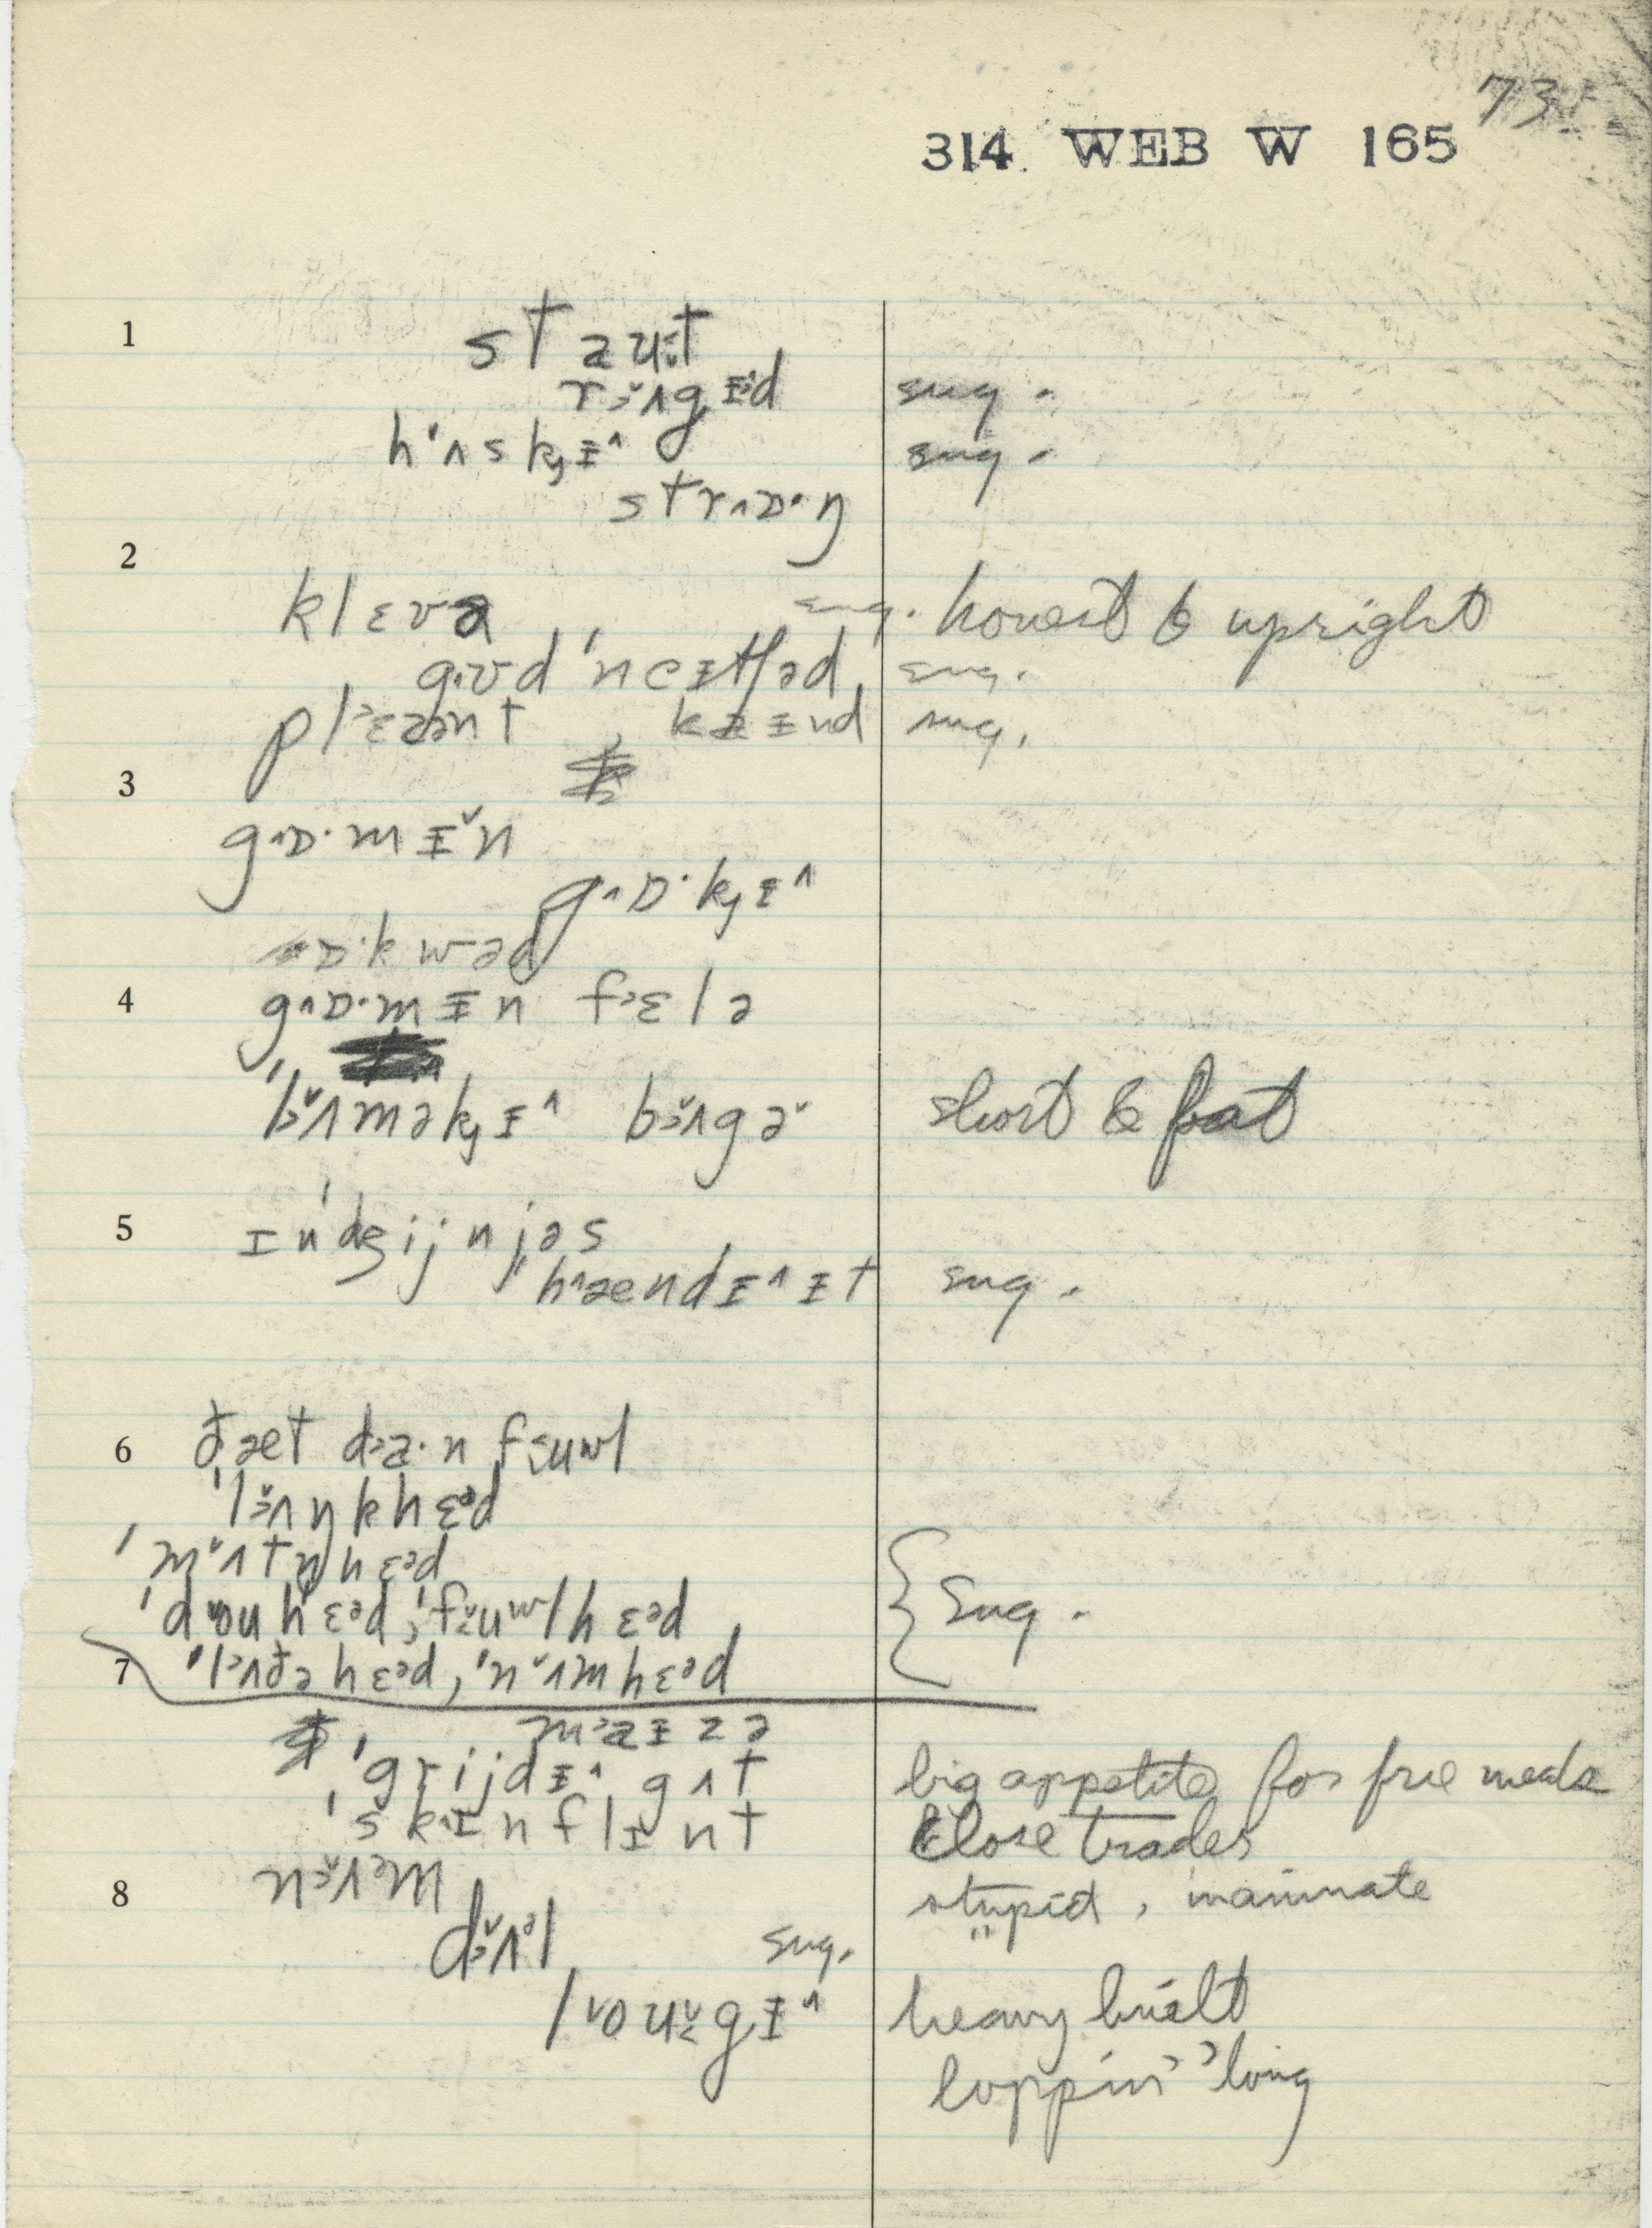 73
314. WEB W 165
1
staut
rʌgɪd sug.
hʌskɪ^ sug.
strɒ·ŋ
2
klɛvə sug. honest & upright
gʊd 'neɪtʃəd sug.
plɛzənt kaɪnd sug.
3
g^ɒ·mɪˇn
g^ɒ·kɪ^
ɒ·kwəd
4
g^ɒ·mɪn fɛlə
'bʌməkɪ^ bʌgəˇ short & fat
5
ɪn'dʒijnjəs
'hændɪ^ɪt sug.
6
ðæt da·n fuwl
'lʌŋkhɛəd
'mʌtṇhɛəd
'douhɛəd, 'fuwlhɛəd Sug.
7 'lʌðəhɛəd, 'nʌmhɛəd
maɪzə
'grijdɪ^ gʌt big appetite for free meals
'skɪnflɪnt Close trades
8
nʌəm stupid, inanimate
dʌəl sug. "
lougɪ^ heavy built
loppin' 'long